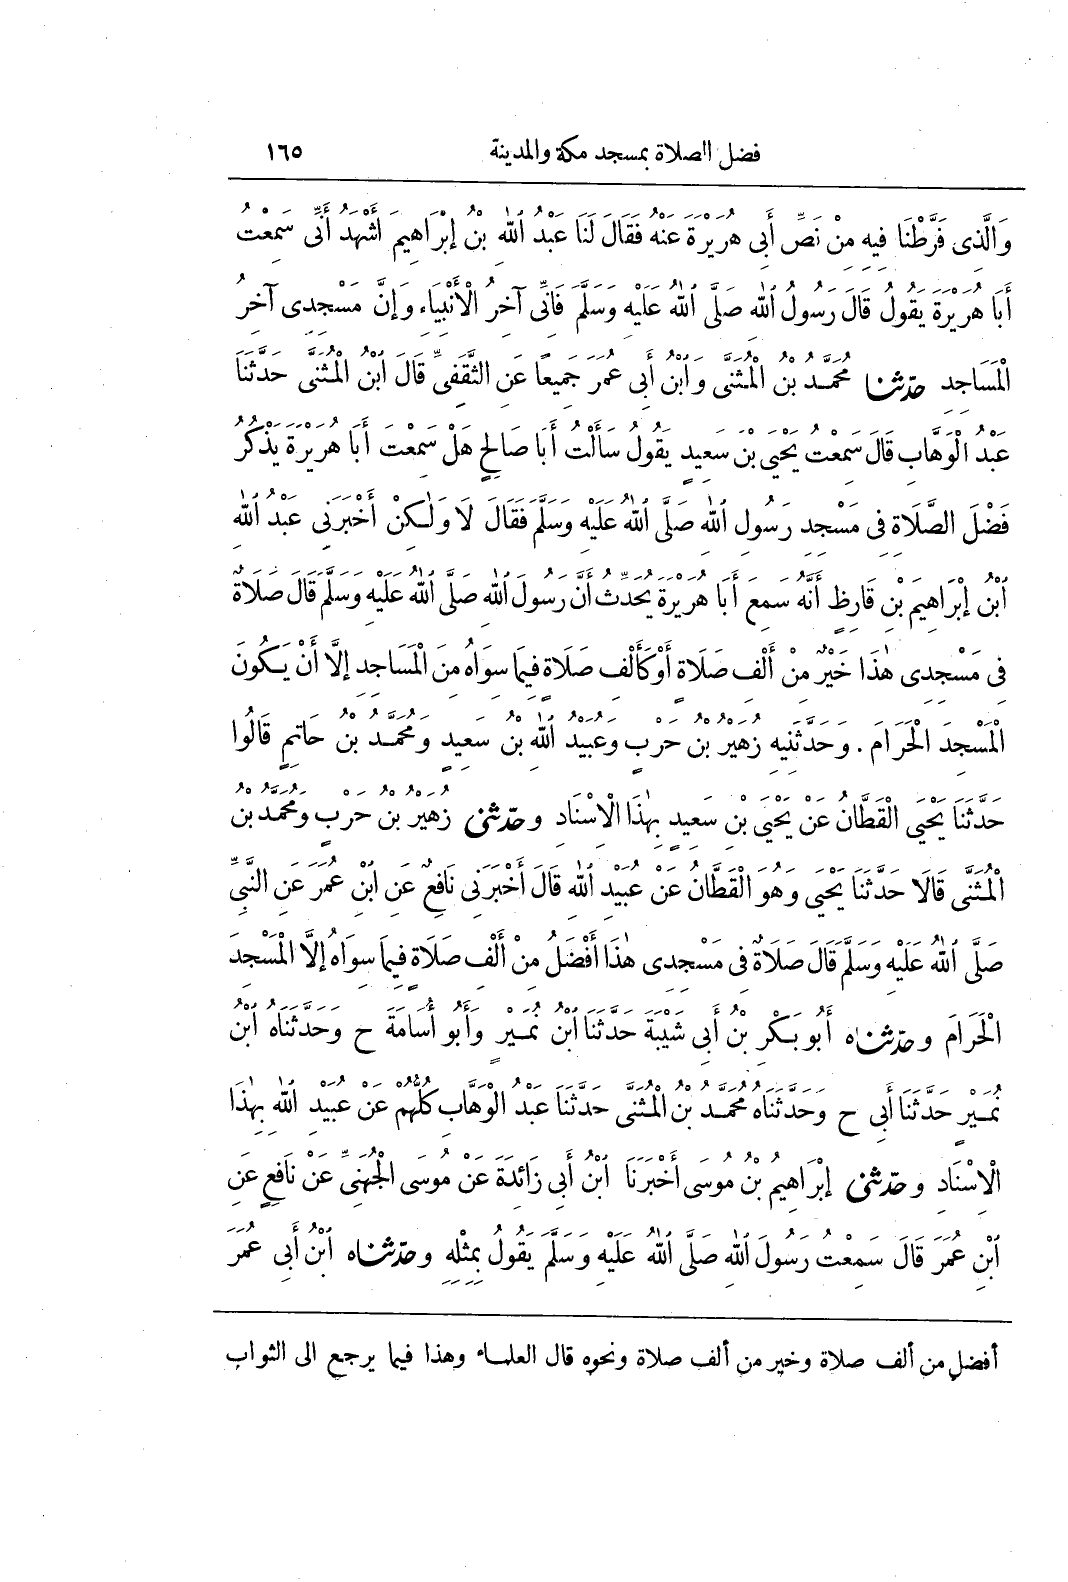 فضل الصلاة بمسجد مكة والمدينة ١٦٥
وَالَّذِى فَرَّطْنَا فِيهِ مِنْ نَصِّ أَبِى هُرَيْرَةَ عَنْهُ فَقَالَ لَنَا عَبْدُ اللهِ بْنُ إِبْرَاهِيمَ أَشْهَدُ أَنِّى سَمِعْتُ
أَبَا هُرَيْرَةَ يَقُولُ قَالَ رَسُولُ اللهِ صَلَّى اللهُ عَلَيْهِ وَسَلَّمَ فَإِنِّى آخِرُ الْأَنْبِيَاءِ وَإِنَّ مَسْجِدِى آخِرُ
الْمَسَاجِدِ حَدَّثَنَا مُحَمَّدُ بْنُ الْمُثَنَّى وَابْنُ أَبِى عُمَرَ جَمِيعًا عَنِ الثَّقَفِىِّ قَالَ ابْنُ الْمُثَنَّى حَدَّثَنَا
عَبْدُ الْوَهَّابِ قَالَ سَمِعْتُ يَحْيَى بْنَ سَعِيدٍ يَقُولُ سَأَلْتُ أَبَا صَالِحٍ هَلْ سَمِعْتَ أَبَا هُرَيْرَةَ يَذْكُرُ
فَضْلَ الصَّلَاةِ فِى مَسْجِدِ رَسُولِ اللهِ صَلَّى اللهُ عَلَيْهِ وَسَلَّمَ فَقَالَ لَا وَلَكِنْ أَخْبَرَنِى عَبْدُ اللهِ
ابْنُ إِبْرَاهِيمَ بْنِ قَارِظٍ أَنَّهُ سَمِعَ أَبَا هُرَيْرَةَ يُحَدِّثُ أَنَّ رَسُولَ اللهِ صَلَّى اللهُ عَلَيْهِ وَسَلَّمَ قَالَ صَلَاةٌ
فِى مَسْجِدِى هٰذَا خَيْرٌ مِنْ أَلْفِ صَلَاةٍ أَوْ كَأَلْفِ صَلَاةٍ فِيمَا سِوَاهُ مِنَ الْمَسَاجِدِ إِلَّا أَنْ يَكُونَ
الْمَسْجِدَ الْحَرَامَ . وَحَدَّثَنِيهِ زُهَيْرُ بْنُ حَرْبٍ وَعُبَيْدُ اللهِ بْنُ سَعِيدٍ وَمُحَمَّدُ بْنُ حَاتِمٍ قَالُوا
حَدَّثَنَا يَحْيَى الْقَطَّانُ عَنْ يَحْيَى بْنِ سَعِيدٍ بِهٰذَا الْإِسْنَادِ وحدّثنى زُهَيْرُ بْنُ حَرْبٍ وَمُحَمَّدُ بْنُ
الْمُثَنَّى قَالَا حَدَّثَنَا يَحْيَى وَهُوَ الْقَطَّانُ عَنْ عُبَيْدِ اللهِ قَالَ أَخْبَرَنِى نَافِعٌ عَنِ ابْنِ عُمَرَ عَنِ النَّبِىِّ
صَلَّى اللهُ عَلَيْهِ وَسَلَّمَ قَالَ صَلَاةٌ فِى مَسْجِدِى هٰذَا أَفْضَلُ مِنْ أَلْفِ صَلَاةٍ فِيمَا سِوَاهُ إِلَّا الْمَسْجِدَ
الْحَرَامَ وحدّثناه أَبُو بَكْرِ بْنُ أَبِى شَيْبَةَ حَدَّثَنَا ابْنُ نُمَيْرٍ وَأَبُو أُسَامَةَ ح وَحَدَّثَنَاهُ ابْنُ
نُمَيْرٍ حَدَّثَنَا أَبِى ح وَحَدَّثَنَاهُ مُحَمَّدُ بْنُ الْمُثَنَّى حَدَّثَنَا عَبْدُ الْوَهَّابِ كُلُّهُمْ عَنْ عُبَيْدِ اللهِ بِهٰذَا
الْإِسْنَادِ وحدّثنى إِبْرَاهِيمُ بْنُ مُوسَى أَخْبَرَنَا ابْنُ أَبِى زَائِدَةَ عَنْ مُوسَى الْجُهَنِىِّ عَنْ نَافِعٍ عَنِ
ابْنِ عُمَرَ قَالَ سَمِعْتُ رَسُولَ اللهِ صَلَّى اللهُ عَلَيْهِ وَسَلَّمَ يَقُولُ بِمِثْلِهِ وحدّثناه ابْنُ أَبِى عُمَرَ
أفضل من ألف صلاة وخير من ألف صلاة ونحوه قال العلماء وهذا فيما يرجع الى الثواب